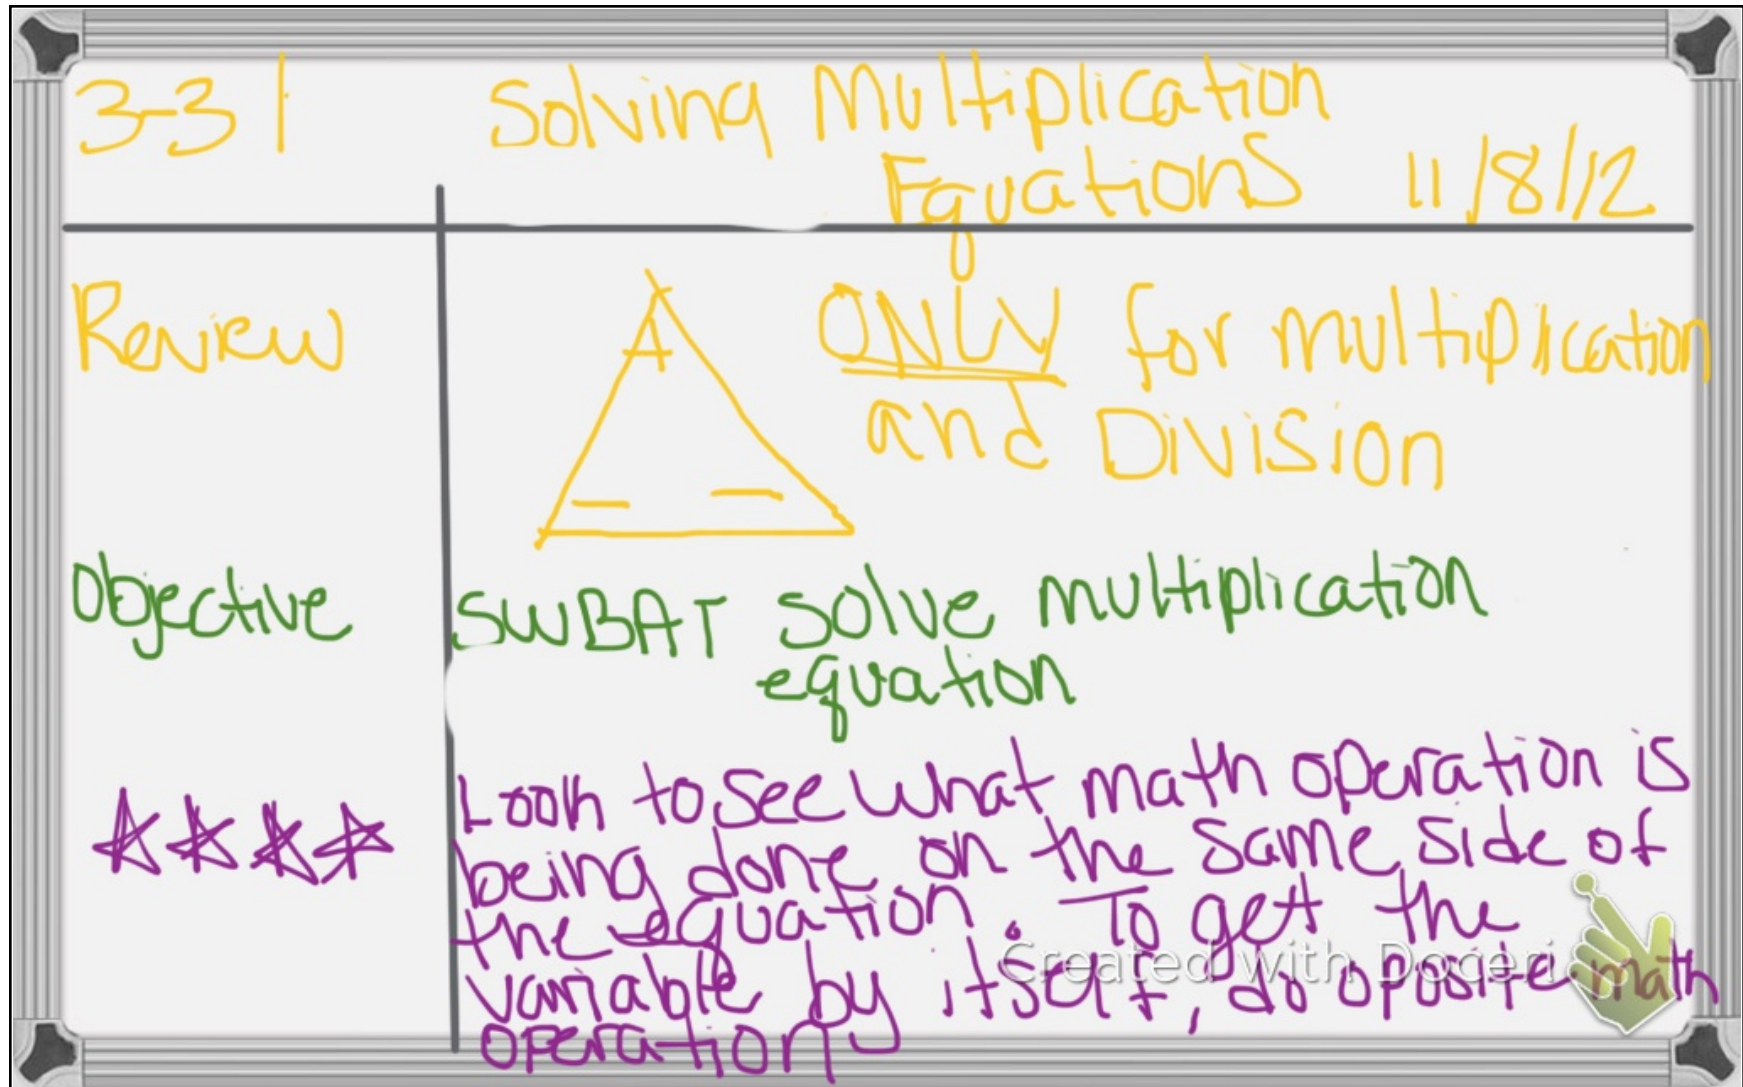 3-3 | Solving Multiplication
Equations 11/8/12
Review
A
ONLY for multiplication
and Division
Objective
SWBAT solve multiplication
equation
Look to see what math operation is
being done on the same side of
the equation. To get the
variable by itself, do oposite math
operation
Created with Doceri